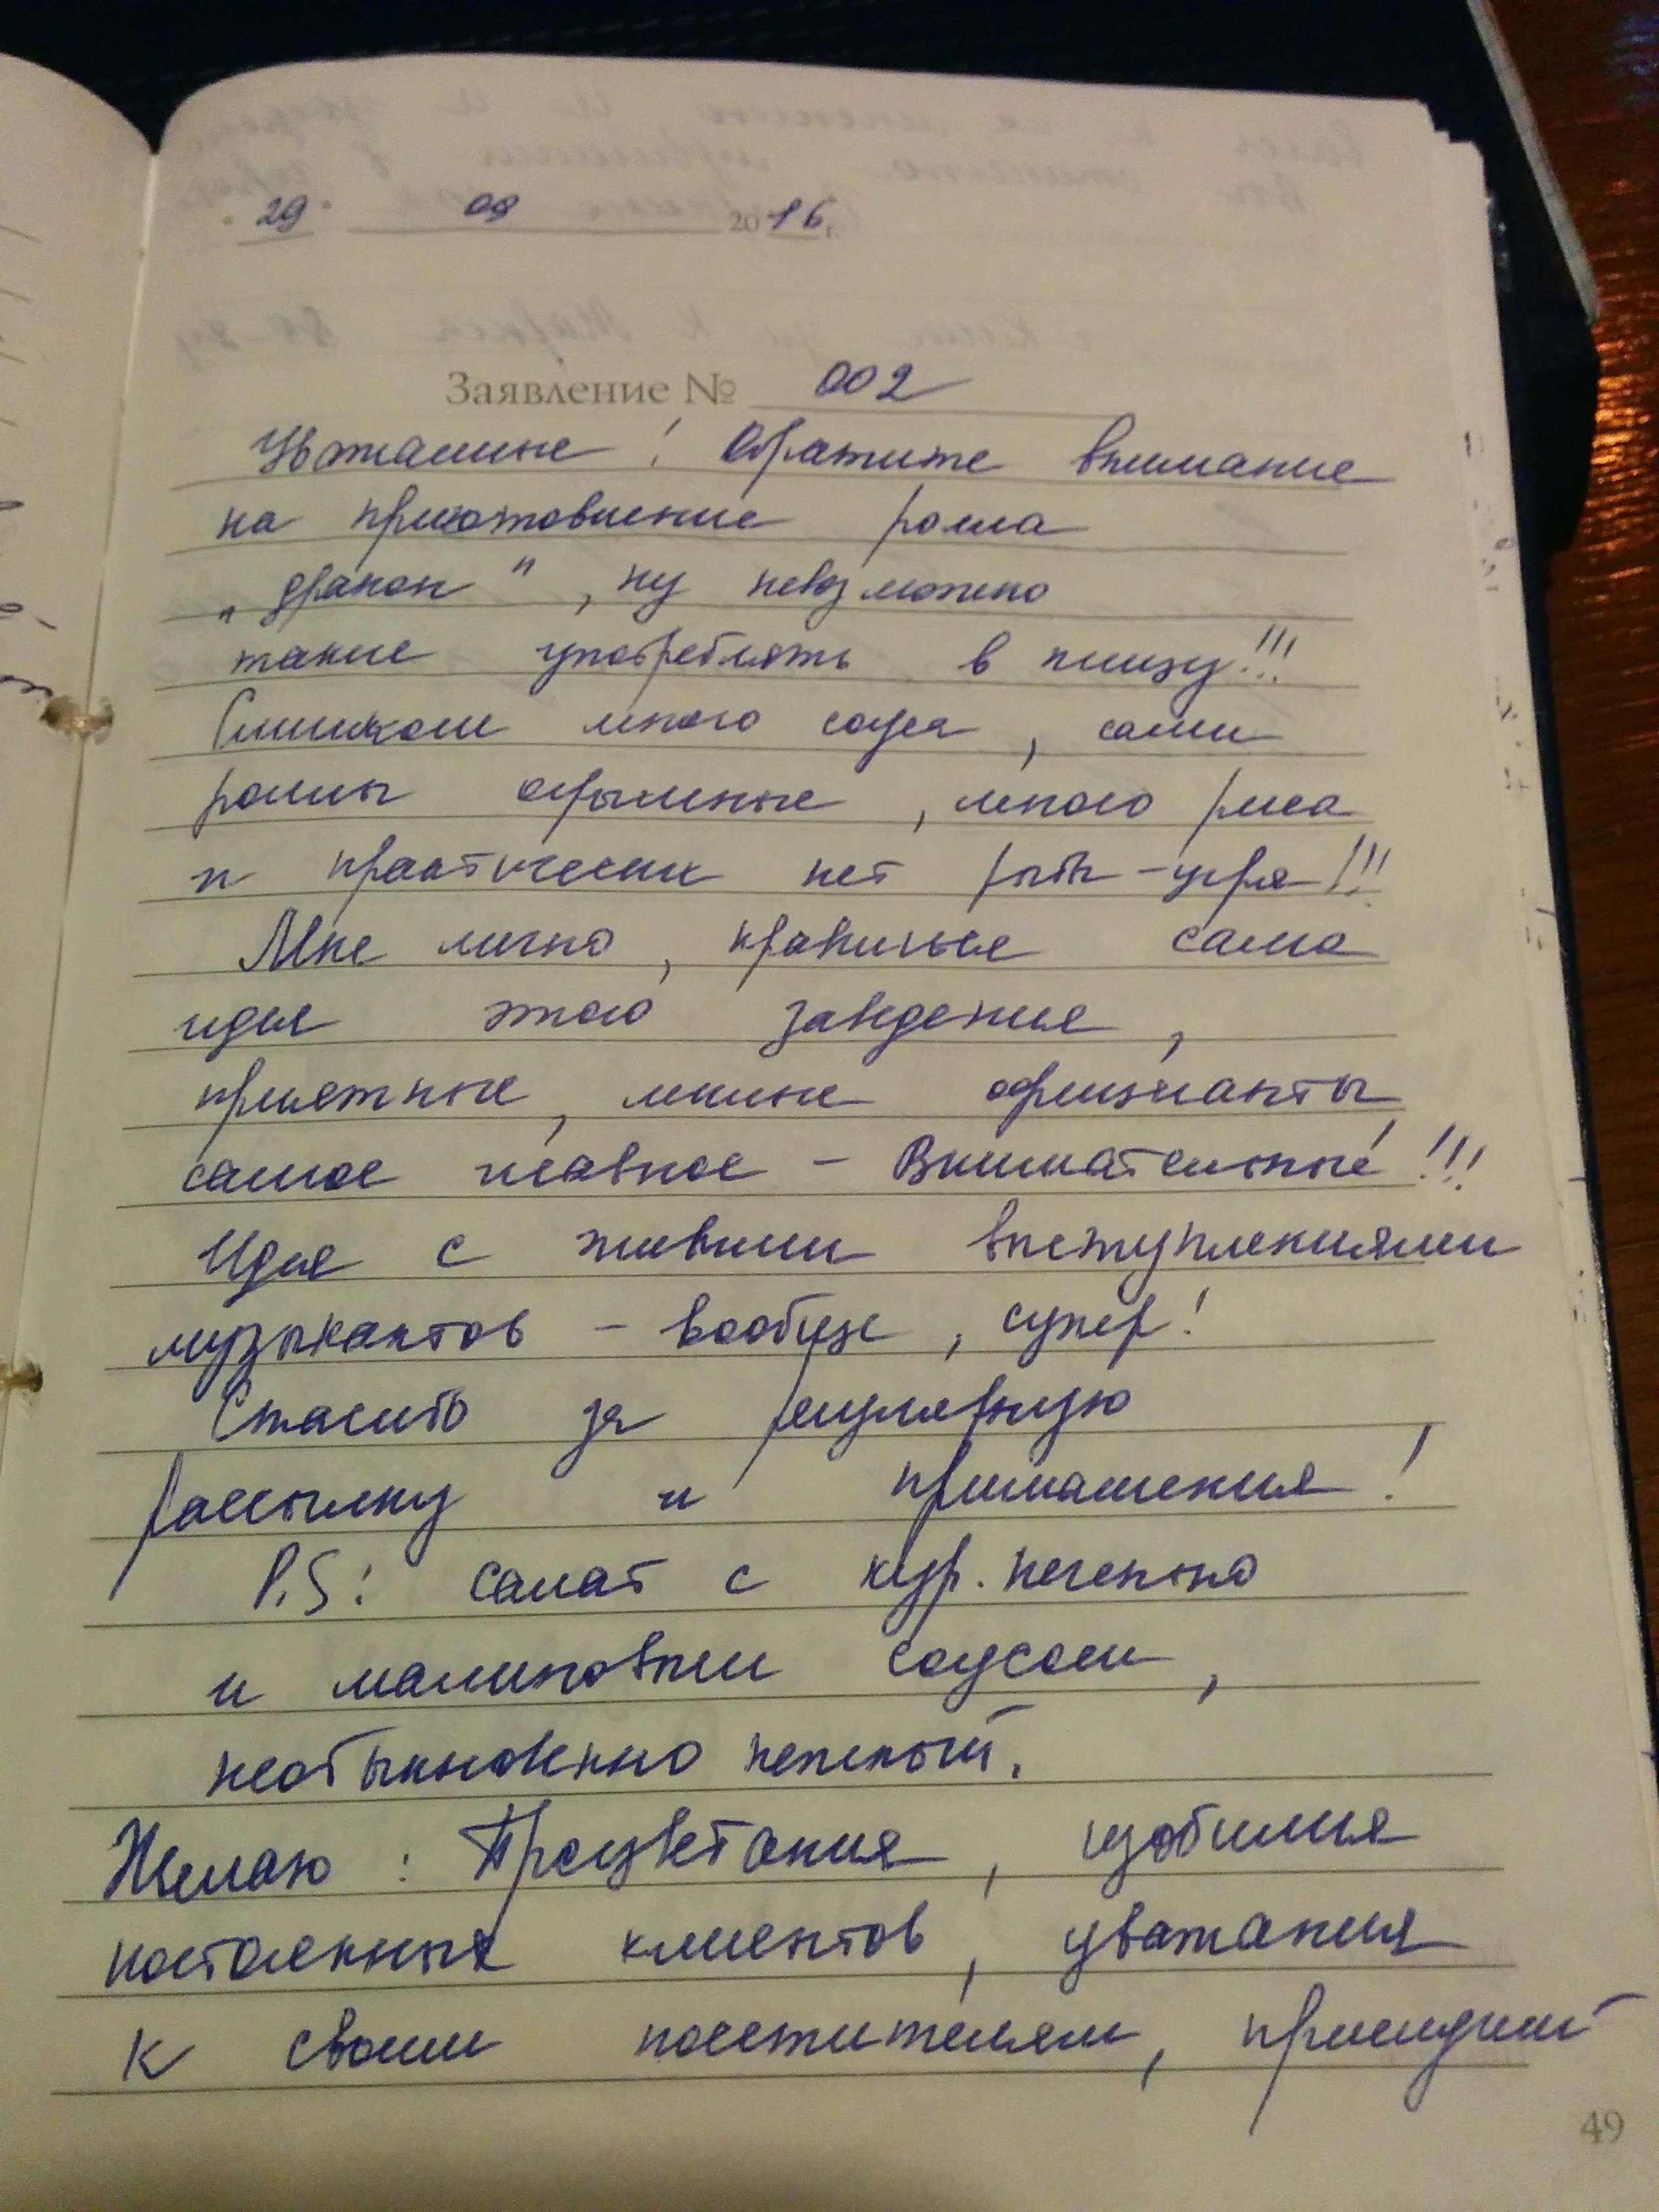 29. 09 2016 г.
Заявление № 002
Уважаемые! Обратите внимание
на приготовление ролла
„дракон", ну невозможно
такие употреблять в пищу!!!
Слишком много соуса, сами
роллы огромные, много риса
и практически нет рыбы-угря!!!
Мне лично, нравиться сама
идея этого заведения,
приятные, милые официанты,
самое главное - Внимательные!!!
Идея с живыми выступлениями
музыкантов - вообще, супер!
Спасибо за регулярную
рассылку и приглашения!
P.S: салат с кур. печенью
и малиновым соусом,
необыкновенно нежный.
Желаю: Процветания, изобилия
постоянных клиентов, уважения
к своим посетителям,
49